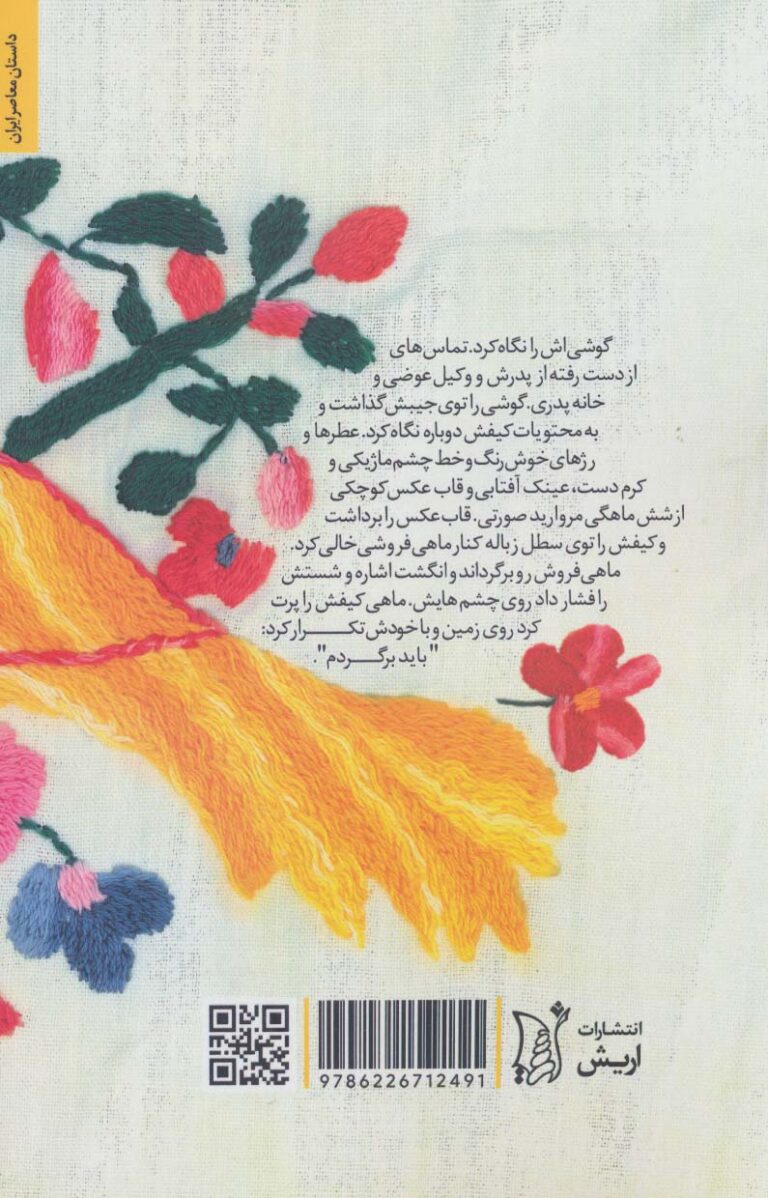 داستان معاصر ایران
گوشی‌اش را نگاه کرد. تماس‌های
از دست رفته از پدرش و وکیل عوضی و
خانه پدری. گوشی را توی جیبش گذاشت و
به محتویات کیفش دوباره نگاه کرد. عطرها و
رژهای خوش رنگ و خط چشم ماژیکی و
کرم دست، عینک آفتابی و قاب عکس کوچکی
از شش ماهگی مروارید صورتی. قاب عکس را برداشت
و کیفش را توی سطل زباله کنار ماهی فروشی خالی کرد.
ماهی فروش رو برگرداند و انگشت اشاره و شستش
را فشار داد روی چشم هایش. ماهی کیفش را پرت
کرد روی زمین و با خودش تکـــــرار کرد:
"باید برگـــــردم".
انتشارات
اریش
9786226712491